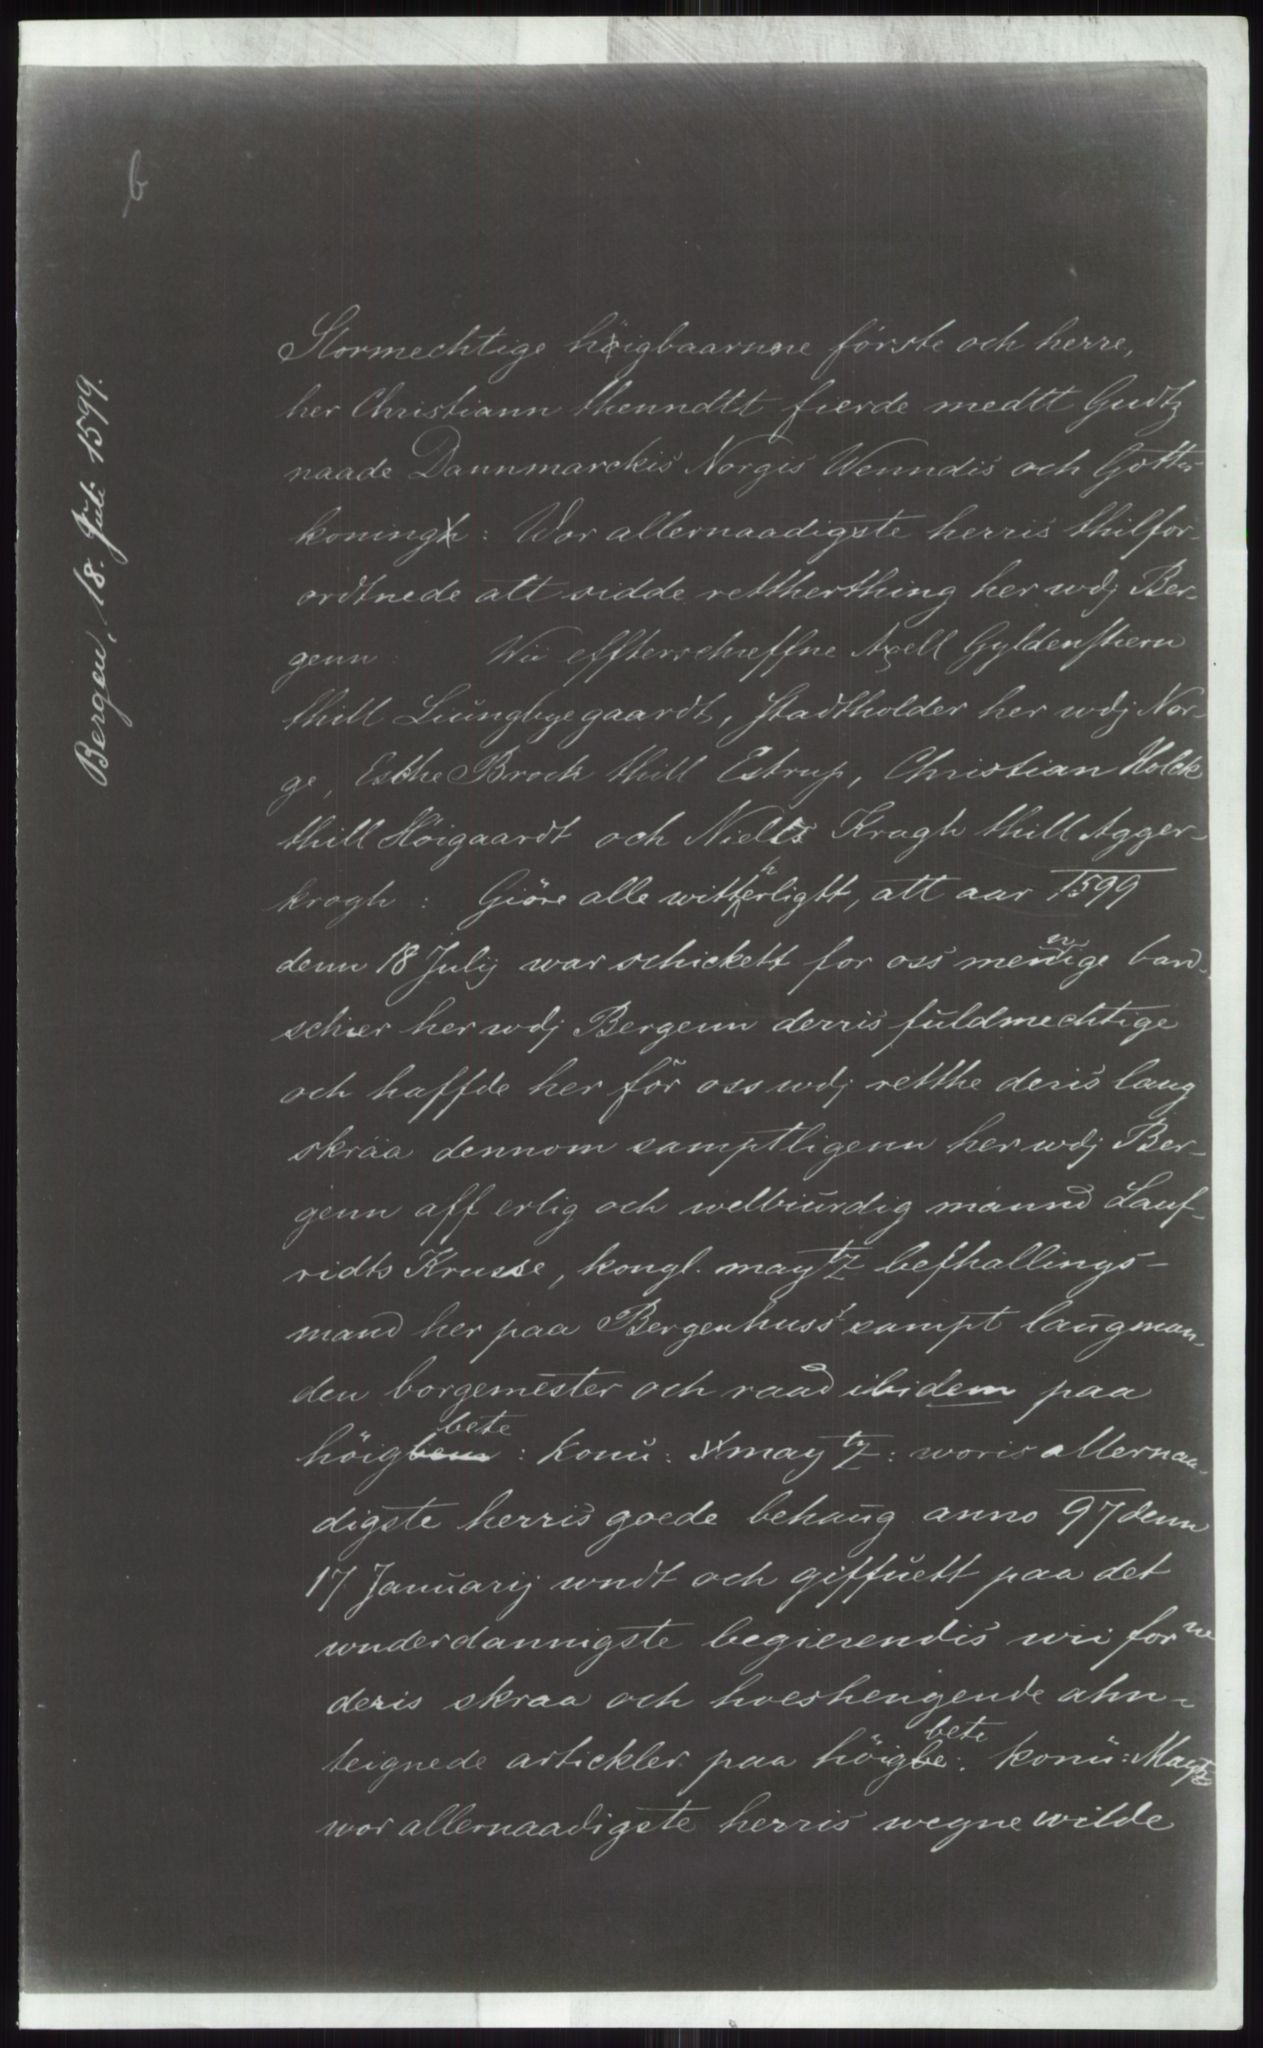 6
Bergen, 18. Juli 1599.
Stormechtige höigbaarnne förste och herre,
her Christiann thenndtt fierde medtt Gudtz
naade Dannmarckis Norgis Wenndis och Gottis
koningh: Wor allernaadigste herris thilfor-
ordtnede att sidde rettherthing her wdj Ber-
genn: Wii effterschreffne Axell Gyldenstiern
thill Liungbyegaardt, stadtholder her wdj Nor-
ge, Eskhe Brock thill Estrup, Christian Holck
thill Höigaardt och Niells Kragh thill Agger-
krogh: Giöre alle witttherligtt, att aar 1599
denn 18 Julij war schickett for oss mennige bard-
schier her wdj Bergenn derris fuldmechtige
och haffde her för oss wdj retthe deris laug
skraa dennom samptligenn her wdj Ber-
genn aff erlig och welbiurdig mannd Lauf-
ridts Krusse, kongl. maytz befhallings-
mand her paa Bergenhuss sampt laugman-
den borgemester och raad ibidem paa
höigbete: konn: maytz: woris allernaa-
digste herris goede behaug anno 97 denn
17 Januarij wndt och giffuett paa det
wnderdannigste begierendis wii forne
deris skraa och hoeshengende ahn-
teignede artickler paa höigbete: konn: Maytz
wor allernaadigste herris wegne wilde